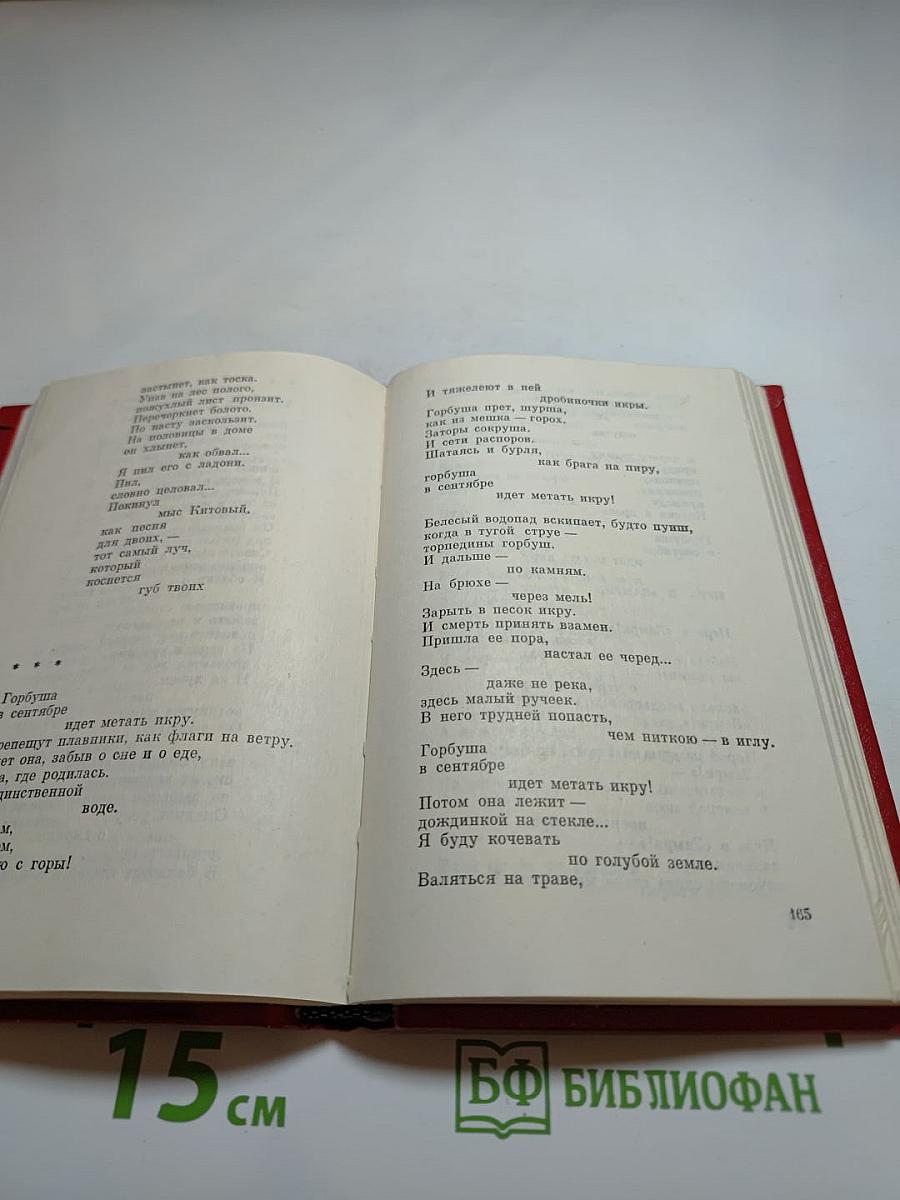 застынет, как тоска.
Упав на лес полого,
пожухлый лист пронзит.
Перечеркнет болото.
По насту заскользит.
На половицы в доме
он хлынет,
как обвал...
Я пил его с ладони.
Пил,
словно целовал...
Покинул
мыс Китовый,
как песня
для двоих, —
тот самый луч,
который
коснется
губ твоих
* * *
Горбуша
в сентябре
идет метать икру.
репещут плавники, как флаги на ветру.
ет она, забыв о сне и о еде,
а, где родилась.
динственной
воде.
м,
ом,
ю с горы!
И тяжелеют в ней
дробиночки икры.
Горбуша прет, шурша,
как из мешка — горох.
Заторы сокруша.
И сети распоров.
Шатаясь и бурля,
как брага на пиру,
горбуша
в сентябре
идет метать икру!
Белесый водопад вскипает, будто пунш,
когда в тугой струе —
торпедины горбуш.
И дальше —
по камням.
На брюхе —
через мель!
Зарыть в песок икру.
И смерть принять взамен.
Пришла ее пора,
настал ее черед...
Здесь —
даже не река,
здесь малый ручеек.
В него трудней попасть,
чем ниткою — в иглу.
Горбуша
в сентябре
идет метать икру!
Потом она лежит —
дождинкой на стекле...
Я буду кочевать
по голубой земле.
Валяться на траве,
165
15 см
БФ БИБЛИОФАН